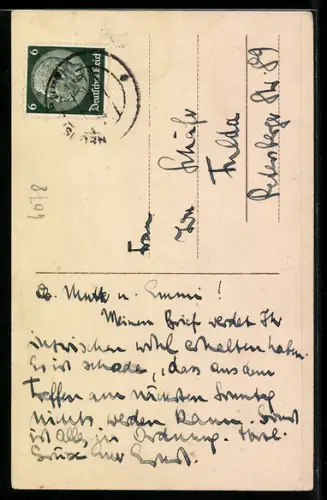 6 Deutsches Reich 6
4078
Frau
Ida Schäfer
Fulda
Petersberger Str. 89
Lb. Mutter u. Emmi!
Meinen Brief werdet Ihr
inzwischen wohl erhalten haben.
Es ist schade, dass aus dem
Treffen am nächsten Sonntag
nichts werden kann. Sonst
ist alles in Ordnung. Herzl.
Grüsse Euer Ernst.